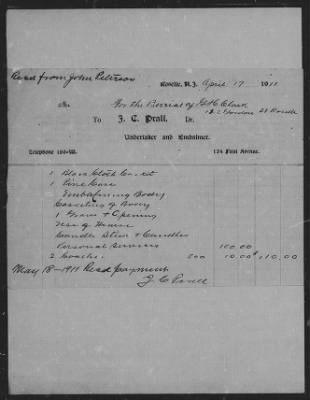 Recd from John Peterson
Roselle, N.J. April 17 1911
For the Burial of
To J. C. Prall, Dr.
Undertaker and Embalmer.
Telephone 124 First Avenue.
1 Black Cloth Casket
1 Pine Case
Embalming Body
Casketing of Body
1 Grave & Opening
Use of Hearse
Candle Stick & Candles
Personal Services 100.00
2 Coaches 500 10.00 $110.00
May 18-1911 Recd payment
J. C. Prall